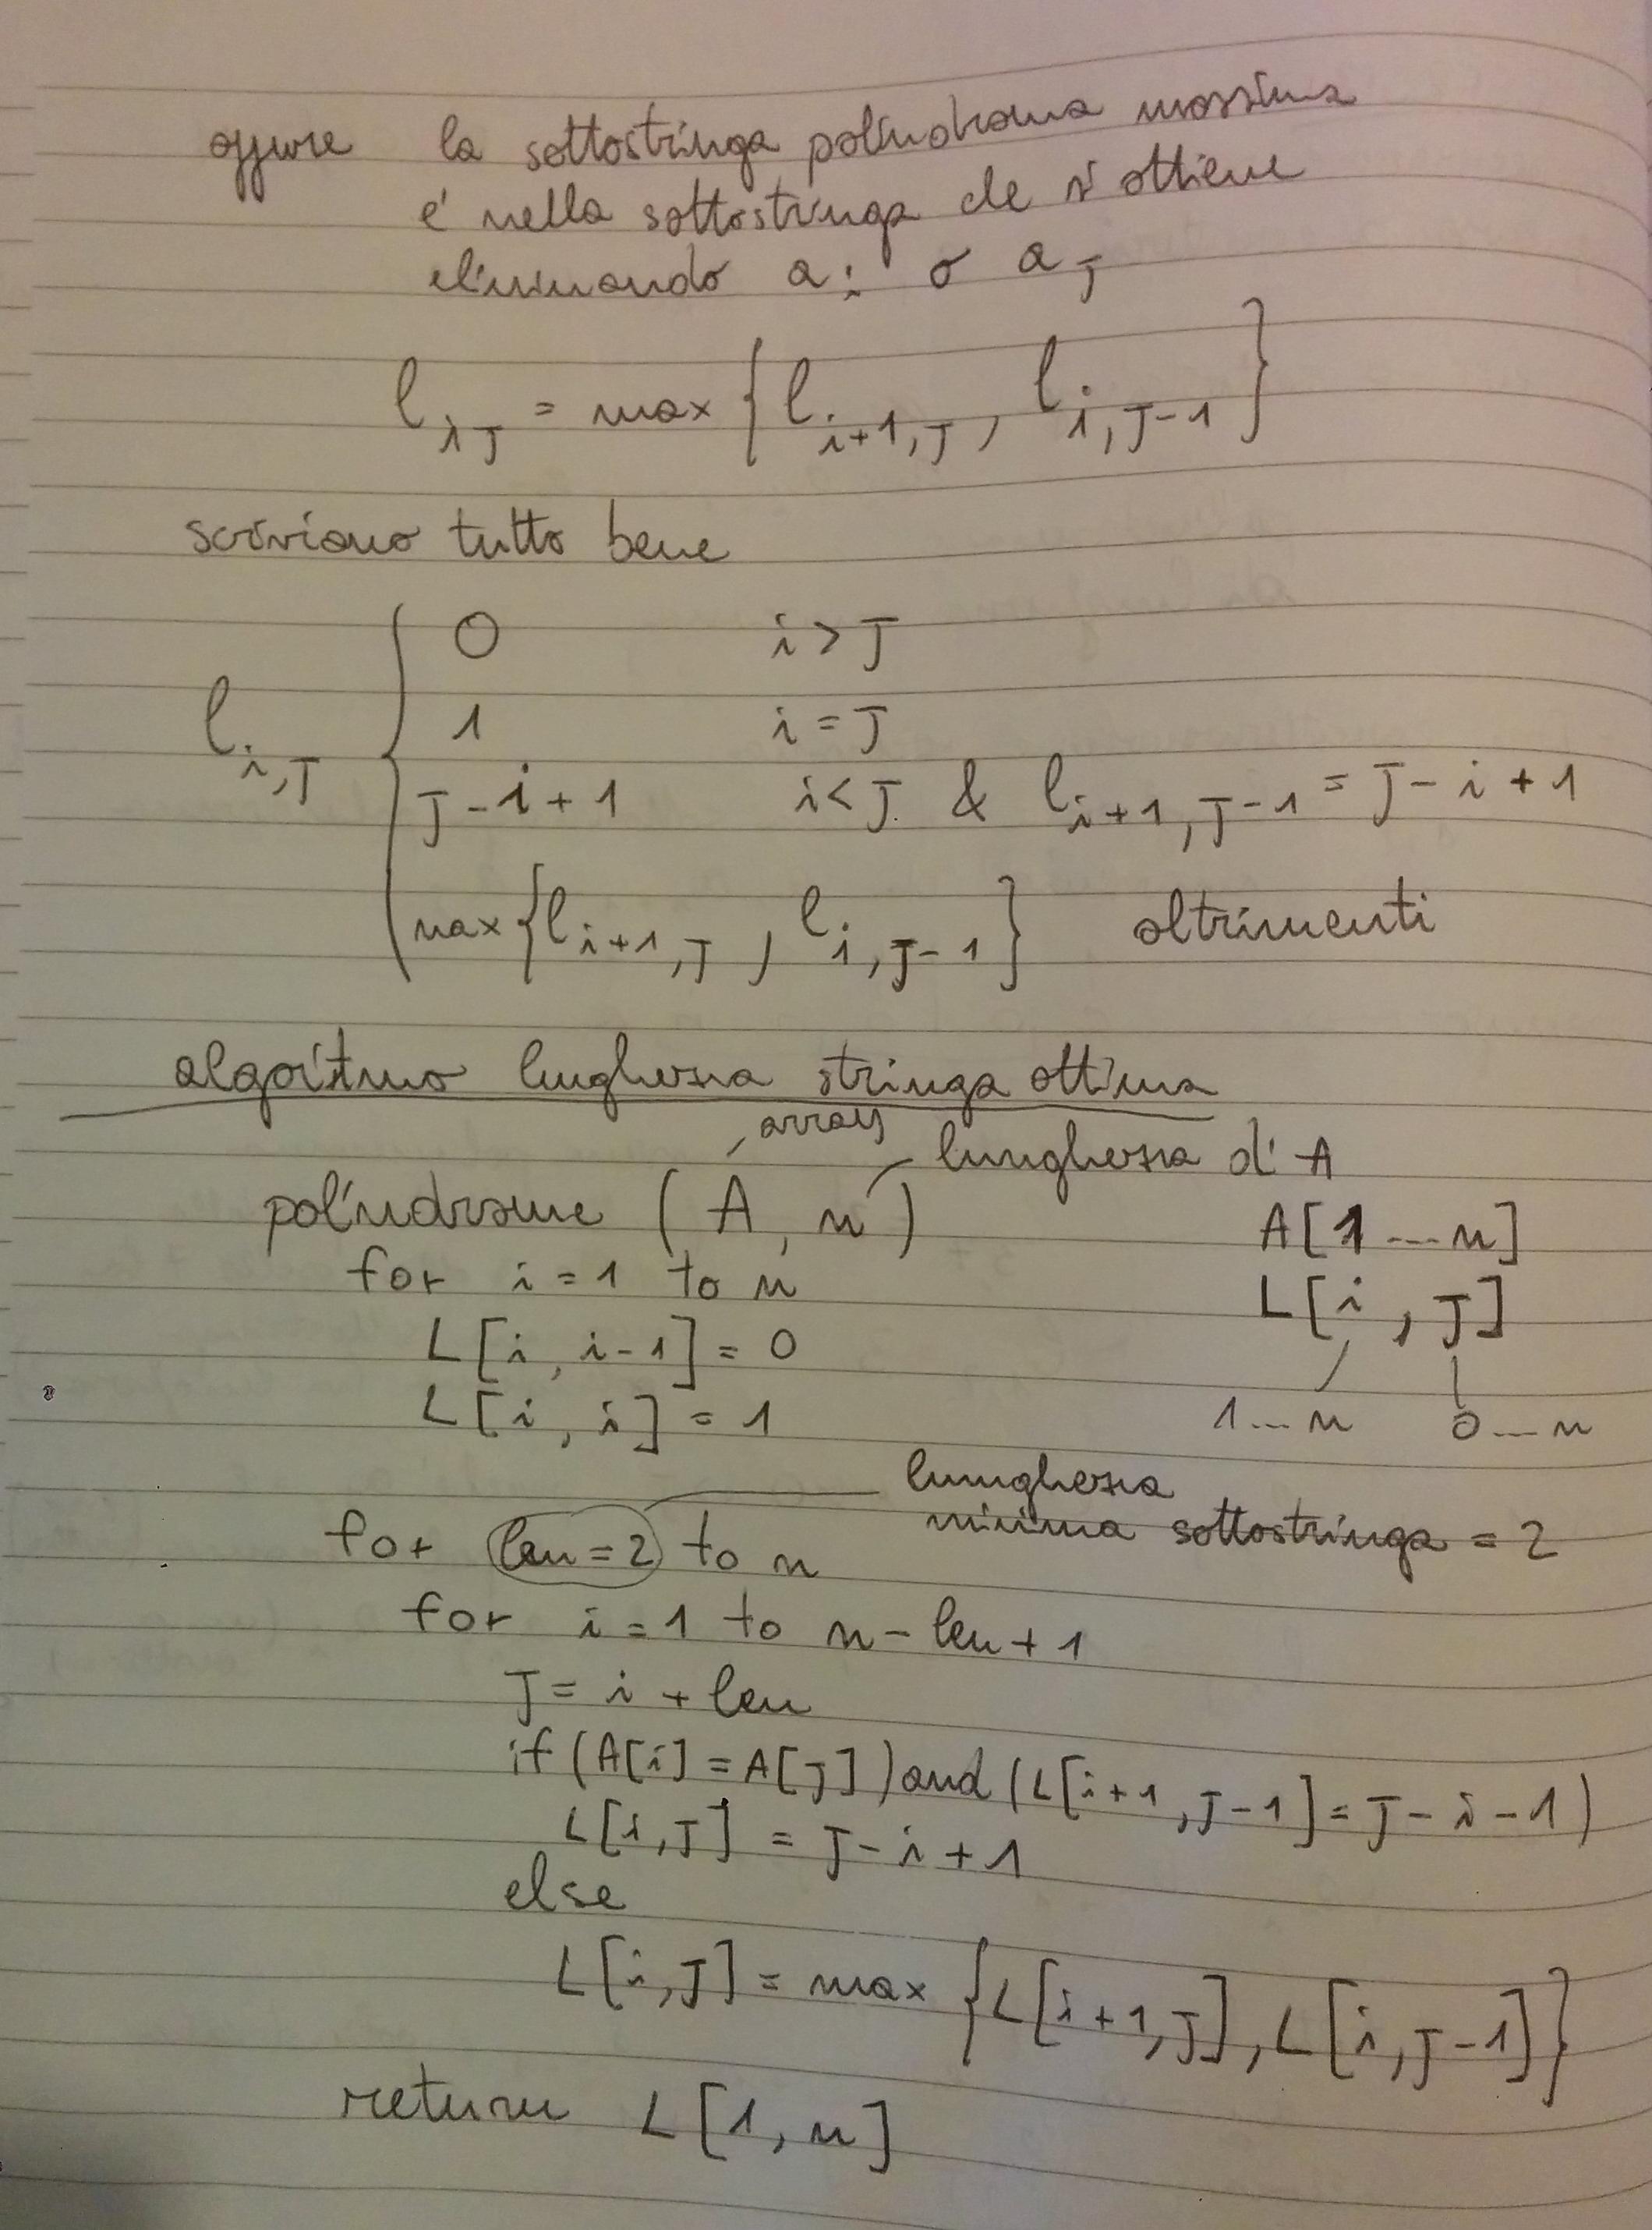 oppure la sottostringa palindroma massima
è nella sottostringa che si ottiene
eliminando a_i o a_J
l_iJ = max { l_i+1,J , l_i,J-1 }
scriviamo tutto bene
0 i > J
1 i = J
l_i,J { J-i+1 i < J & l_i+1,J-1 = J-i+1
max { l_i+1,J , l_i,J-1 } altrimenti
algoritmo lunghezza stringa ottima
array
lunghezza di A
palindrome ( A, n )
A[1...n]
for i = 1 to n
L[i, J]
L[i, i-1] = 0
1...n 0...n
L[i, i] = 1
lunghezza
minima sottostringa = 2
for len = 2 to n
for i = 1 to n - len + 1
J = i + len
if (A[i] = A[J]) and (L[i+1, J-1] = J-i-1)
L[i,J] = J-i+1
else
L[i,J] = max { L[i+1,J], L[i,J-1] }
return L[1,n]